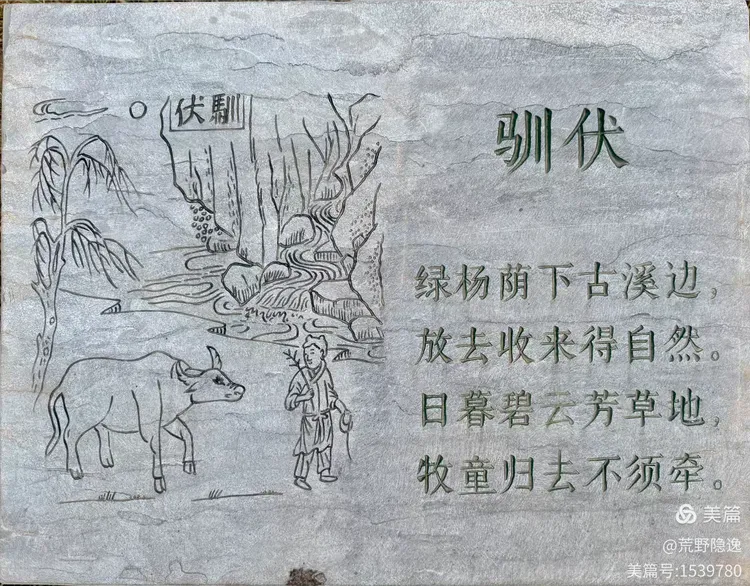 伏馴
驯伏
绿杨荫下古溪边，
放去收来得自然。
日暮碧云芳草地，
牧童归去不须牵。
美篇
@荒野隐逸
美篇号:1539780